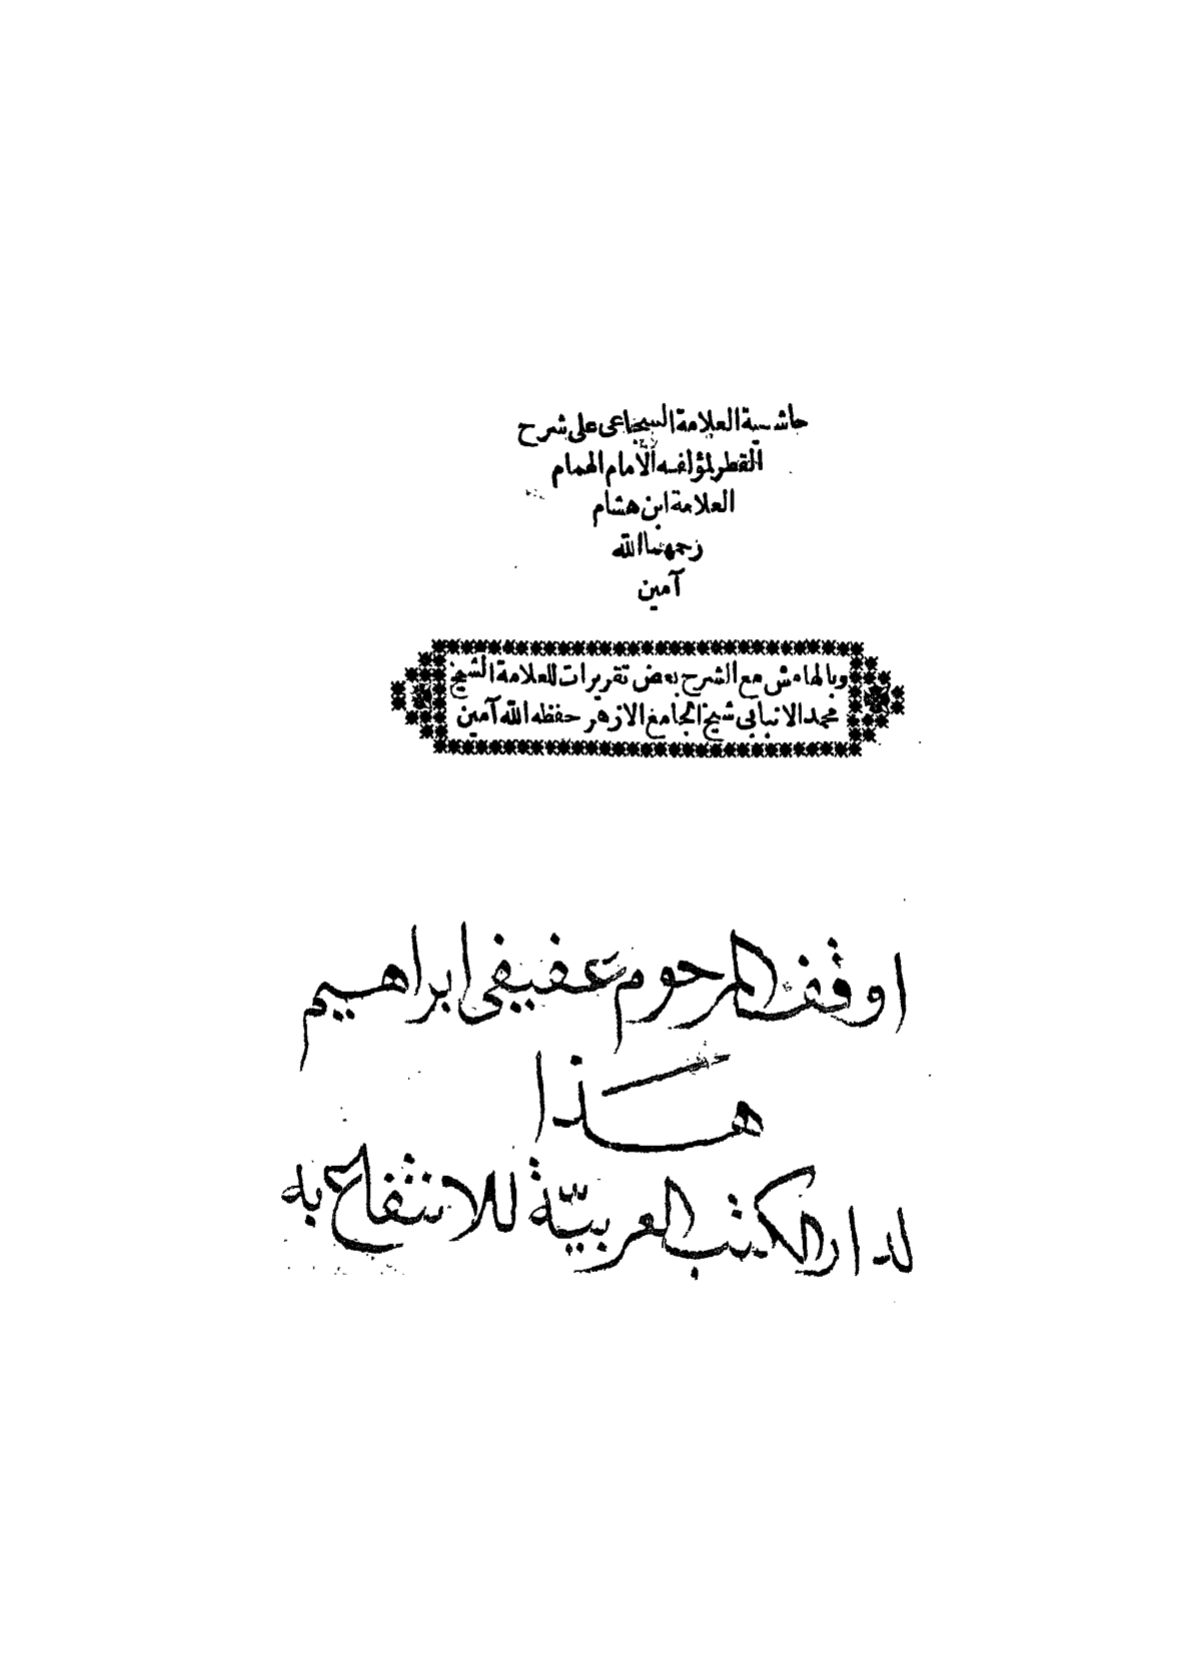 حاشية العلامة السجاعى على شرح
القطر لمؤلفه الامام الهمام
العلامة ابن هشام
رحمهما الله
آمين
وبالهامش مع الشرح بعض تقريرات للعلامة الشيخ
محمد الانبابي شيخ الجامع الازهر حفظه الله آمين
اوقف المرحوم عفيفى ابراهيم
هذا
لدار الكتب العربيّة للانتفاع به